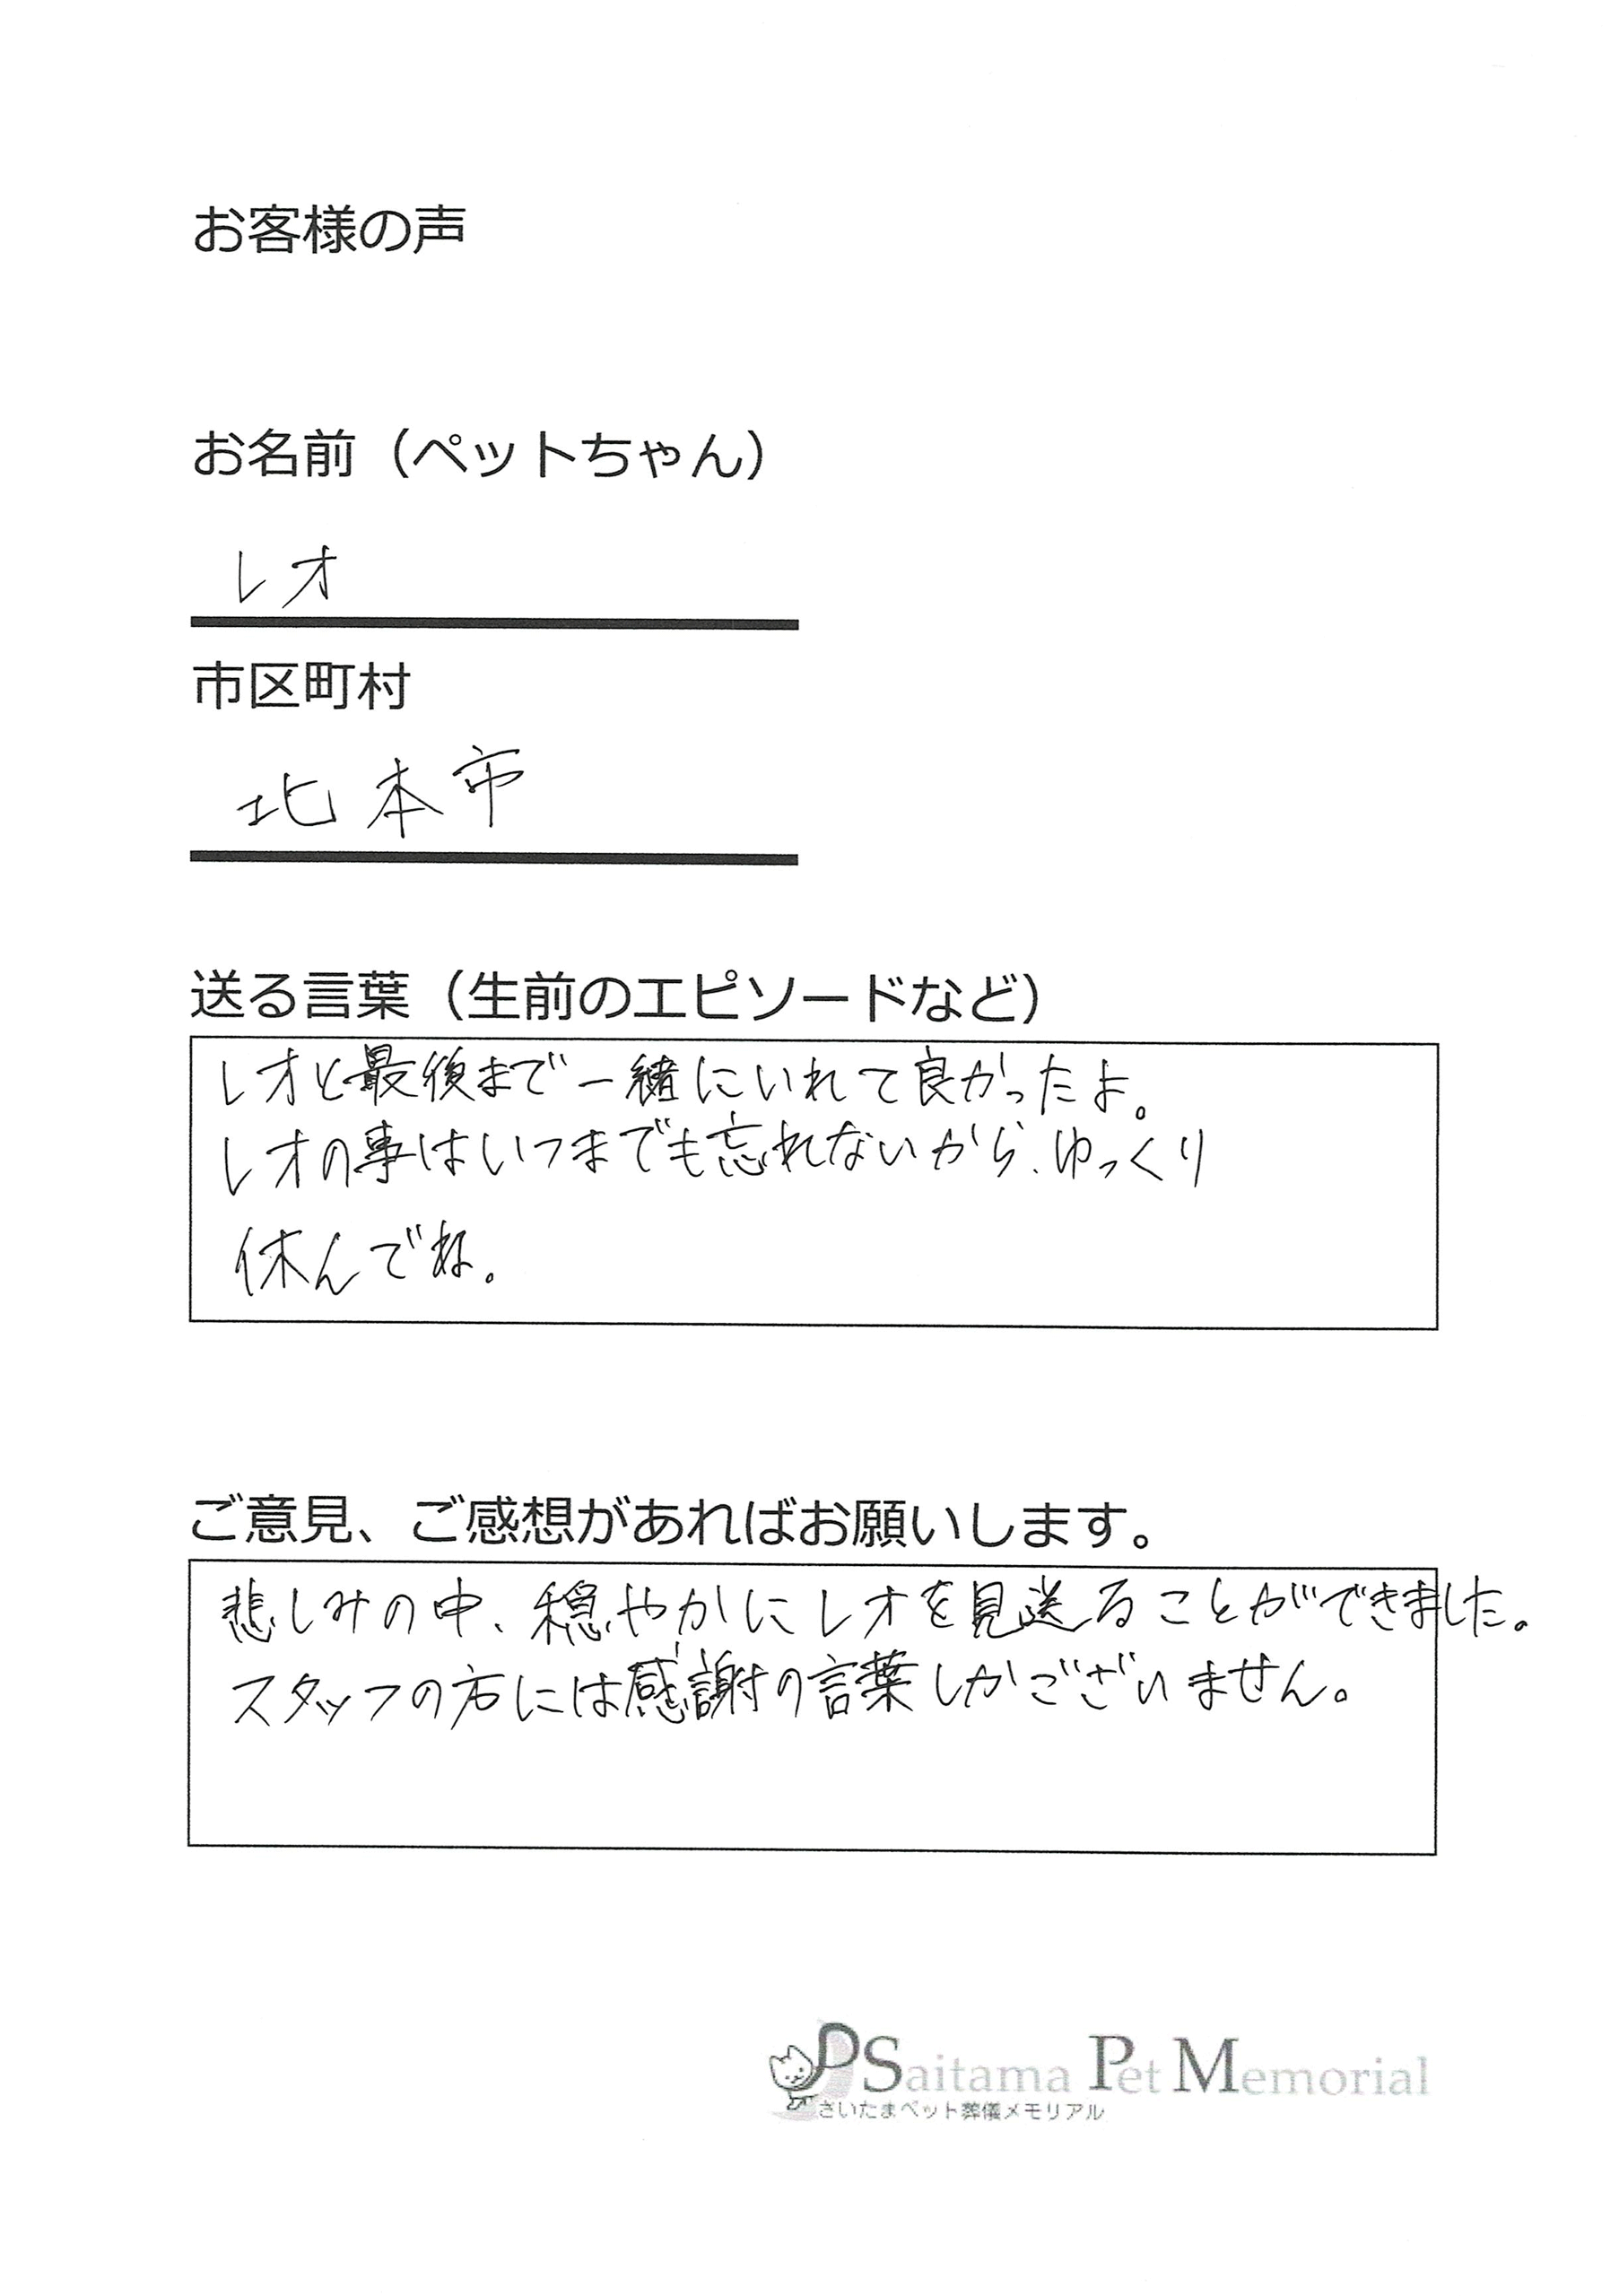 お客様の声
お名前（ペットちゃん）
レオ
市区町村
北本市
送る言葉（生前のエピソードなど）
レオと最後まで一緒にいれて良かったよ。
レオの事はいつまでも忘れないから、ゆっくり
休んでね。
ご意見、ご感想があればお願いします。
悲しみの中、穏やかにレオを見送ることができました。
スタッフの方には感謝の言葉しかございません。
Saitama Pet Memorial
さいたまペット葬儀メモリアル